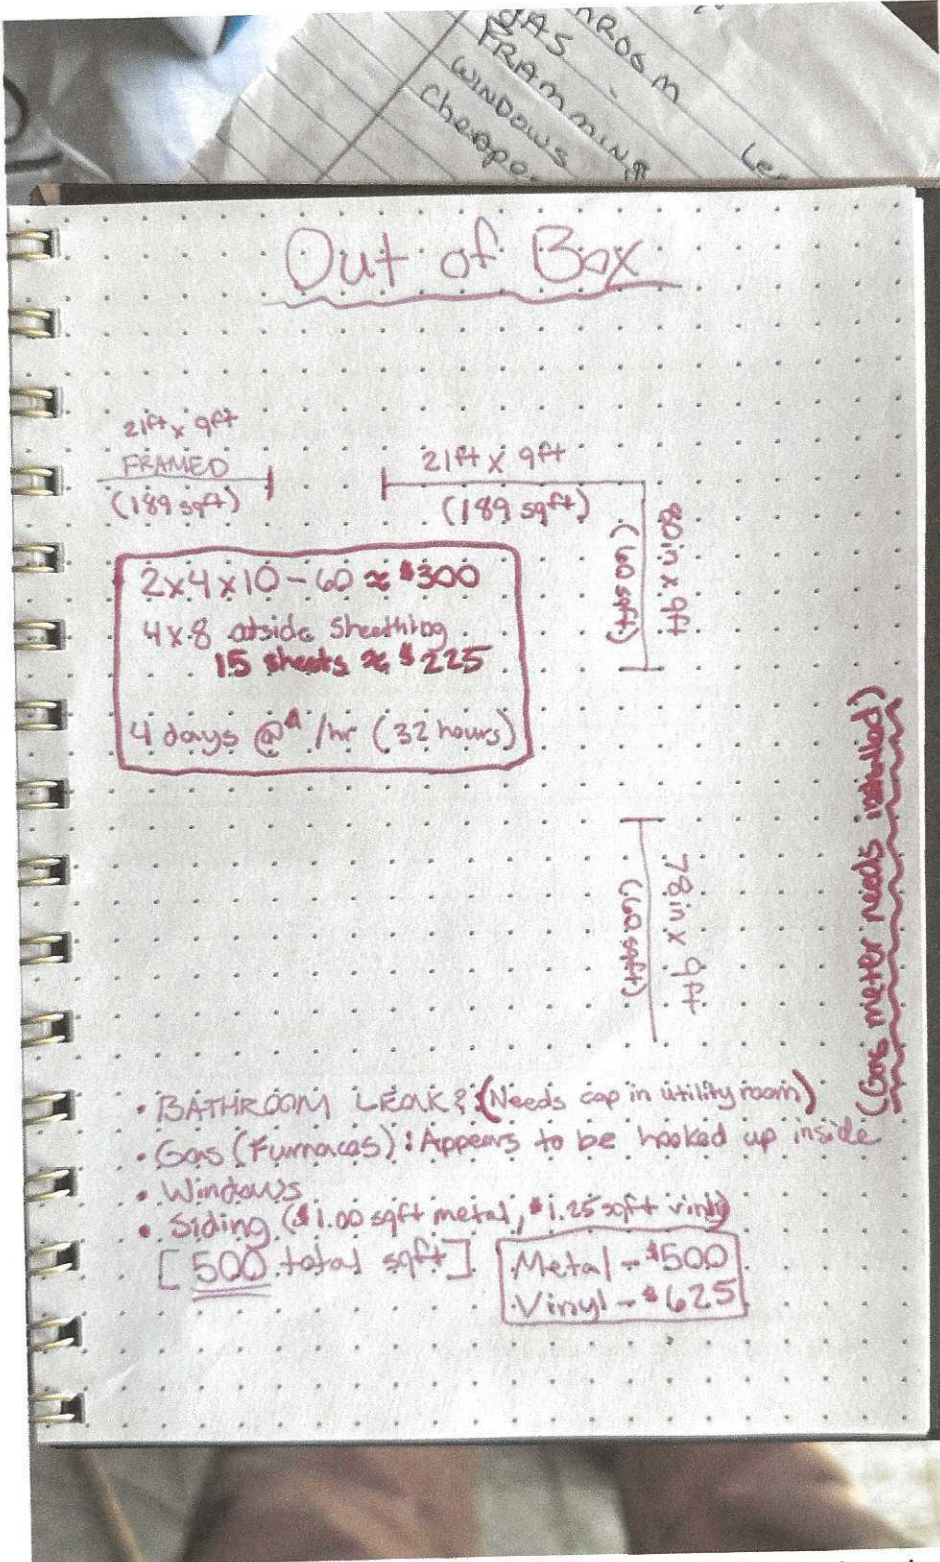 GAS
FRAMMING
WINDOWS
Cheapo
Out of Box
21ft x 9ft
FRAMED
(189 sqft)
21ft x 9ft
(189 sqft)
80in x 9ft
(60 sqft)
2x4x10 - 60 ≈ $300
4x8 outside sheathing
15 sheets ≈ $225
4 days @ /hr (32 hours)
78in x 9ft
(60 sqft)
(Gas meter needs installed)
• BATHROOM LEAK? (Needs cap in utility room)
• Gas (Furnaces): Appears to be hooked up inside
• Windows
• Siding ($1.00 sqft metal, $1.25 sqft vinly)
[500 total sqft]
Metal - $500
Vinyl - $625